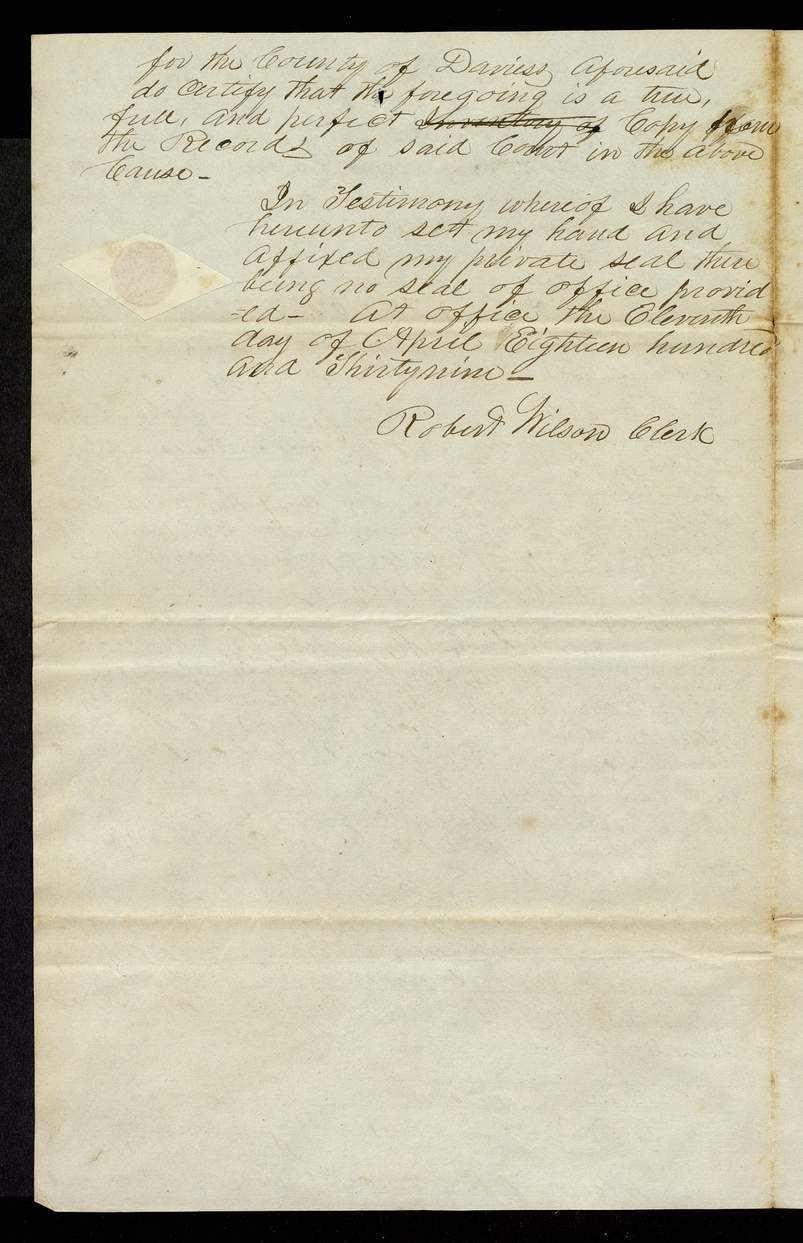 for the County of Daviess aforesaid
do Certify that the foregoing is a true,
full, and perfect Inventory of Copy from
the Records of said Court in the above
Cause -
In Testimony whereof I have
hereunto set my hand and
affixed my private seal there
being no seal of office provid
=ed - At office the Eleventh
day of April Eighteen hundred
and Thirtynine -
Robert Wilson Clerk